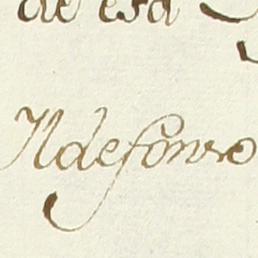 de esa
Ildefonso